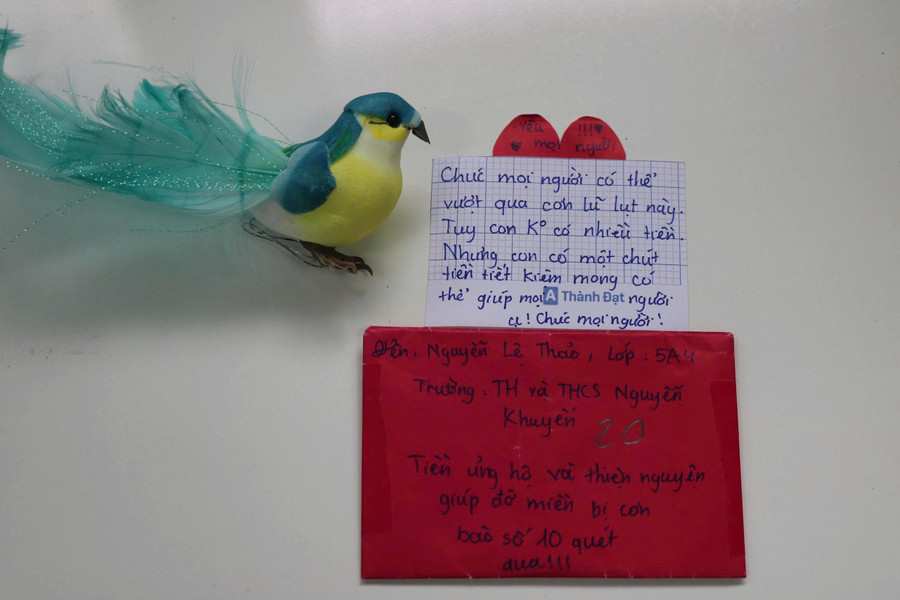 Yêu mọi
!!! người
Chúc mọi người có thể
vượt qua cơn lũ lụt này.
Tuy con K° có nhiều tiền.
Nhưng con có một chút
tiền tiết kiệm mong có
thể giúp mọi người
ạ! Chúc mọi người!
A Thành Đạt
Tên: Nguyễn Lê Thảo, Lớp: 5A4
Trường: TH và THCS Nguyễn
Khuyến
20
Tiền ủng hộ và thiện nguyện
giúp đỡ miền bị cơn
bão số 10 quét
qua!!!